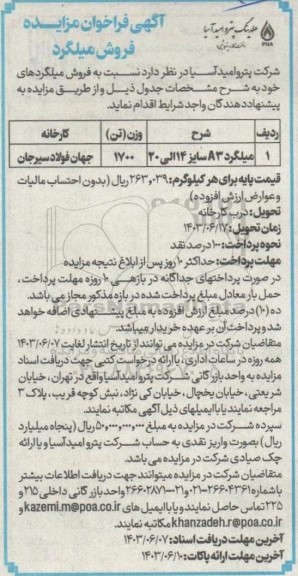 هلدینگ پترو امید آسیا
آگهی فراخوان مزایده
فروش میلگرد
شرکت پتروامیدآسیا در نظر دارد نسبت به فروش میلگردهای
خود به شرح مشخصات جدول ذیل و از طریق مزایده به
پیشنهاددهندگان واجد شرایط اقدام نماید.
ردیف شرح وزن (تن) کارخانه
۱ میلگرد A3 سایز ۱۴ الی ۲۰ ۱۷۰۰ جهان فولاد سیرجان
قیمت پایه برای هر کیلوگرم: ۲۶۳,۰۳۹ ریال (بدون احتساب مالیات
و عوارض ارزش افزوده)
تحویل: درب کارخانه
زمان تحویل: ۱۴۰۳/۰۶/۱۷
نحوه پرداخت: ۱۰۰ درصد نقد
مهلت پرداخت: حداکثر ۱۰ روز پس از ابلاغ نتیجه مزایده
در صورت پرداختهای جداگانه در بازه‌ی ۱۰ روزه مهلت پرداخت،
حمل بار معادل مبلغ پرداخت شده در بازه مذکور مجاز می باشد.
ده (۱۰) درصد مبلغ ارزش افزوده به مبلغ پیشنهادی اضافه خواهد
شد و پرداخت آن بر عهده خریدار میباشد.
متقاضیان شرکت در مزایده می توانند از تاریخ انتشار لغایت ۱۴۰۳/۰۶/۰۷
همه روزه در ساعات اداری، با ارائه درخواست کتبی جهت دریافت اسناد
مزایده به واحد بازرگانی شرکت پترو امید آسیا واقع در تهران، خیابان
شریعتی، خیابان یخچال، خیابان کی نژاد، نبش کوچه قریب، پلاک ۳
مراجعه نمایند یا با ایمیلهای ذیل آگهی مکاتبه نمایند.
سپرده شرکت در مزایده به مبلغ ۵۰,۰۰۰,۰۰۰,۰۰۰ ریال (پنجاه میلیارد
ریال) بصورت واریز نقدی به حساب شرکت پترو امید آسیا و یا ارائه
چک صیادی شرکت در مزایده می باشد.
متقاضیان شرکت در مزایده میتوانند جهت دریافت اطلاعات بیشتر
با شماره ۲۶۶۰۴۳۶۱-۰۲۱ و ۲۶۶۰۲۸۷۱ واحد بازرگانی داخلی ۲۱۵ و
۲۲۵ تماس حاصل نمایند و یا با ایمیل های kazemi.m@poa.co.ir و
khanzadeh.r@poa.co.ir مکاتبه نمایند.
آخرین مهلت دریافت اسناد: ۱۴۰۳/۰۶/۰۷
آخرین مهلت ارائه پاکات: ۱۴۰۳/۰۶/۱۰